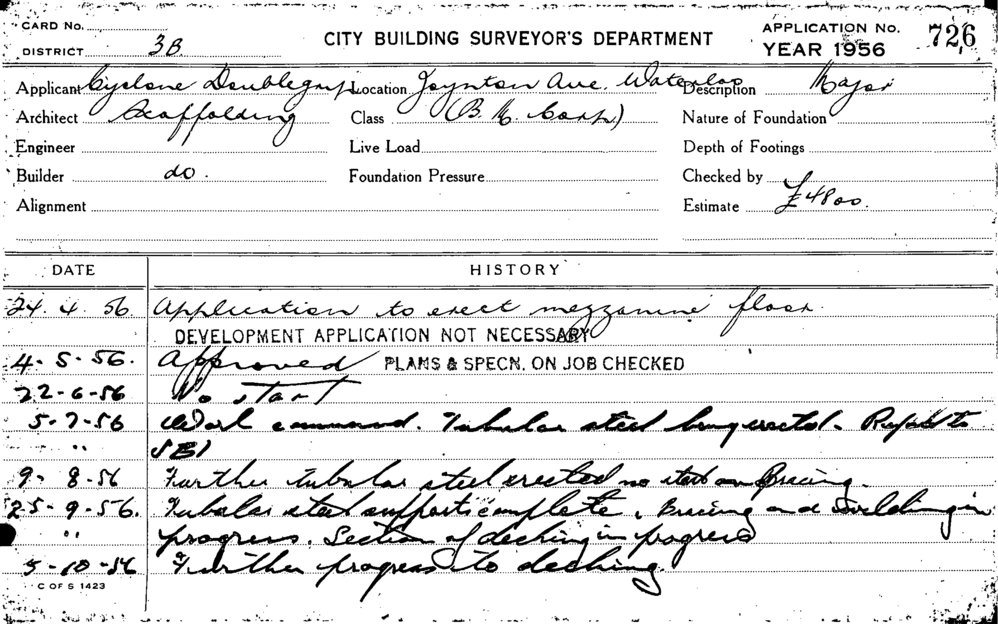 CARD No.
DISTRICT 3B
CITY BUILDING SURVEYOR'S DEPARTMENT
APPLICATION No. 726
YEAR 1956
Applicant Cyclone Doublegrip Location Joynton Ave. Waterloo Description Major
Architect Scaffolding Class (B. H. Cosh) Nature of Foundation
Engineer Live Load Depth of Footings
Builder do. Foundation Pressure Checked by
Alignment Estimate £4800.
DATE HISTORY
24. 4. 56. Application to erect mezzanine floor
DEVELOPMENT APPLICATION NOT NECESSARY
4. 5. 56. Approved PLANS & SPECN. ON JOB CHECKED
22-6-56 No start
5-7-56 Work commenced. Tubular steel being erected. Refer to
" SBI
9-8-56 Further tubular steel erected no start on Bracing.
25-9-56. Tubular steel supports complete, Bracing and Welding in
" progress. Section of decking in progress
5-10-56 Further progress to decking
C OF S 1423